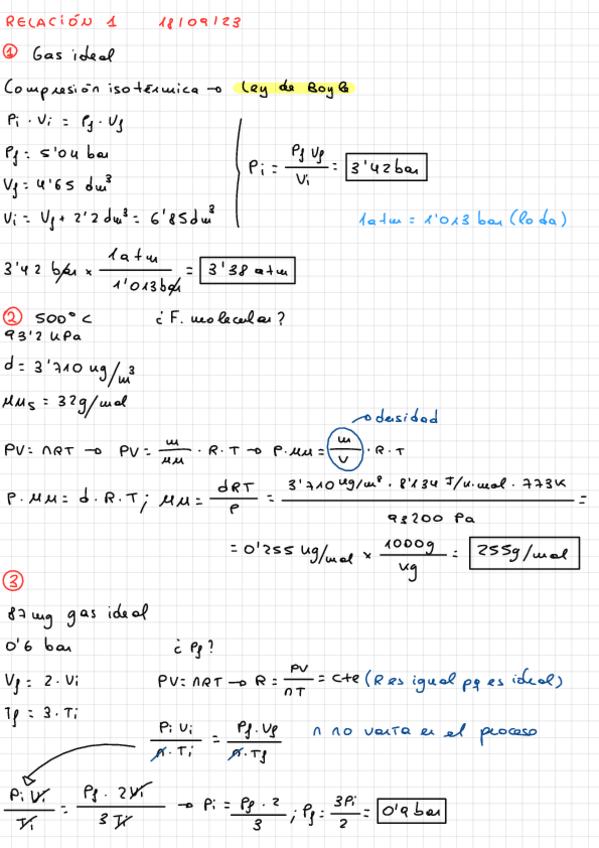 RELACIÓN 1 18/09/23
① Gas ideal
Compresión isotérmica → Ley de Boyle
Pi · Vi = Pf · Vf
Pf = 5'04 bar
Vf = 4'65 dm³
Vi = Vf + 2'2 dm³ = 6'85 dm³
Pi = Pf Vf / Vi = 3'42 bar
1atm = 1'013 bar (lo da)
3'42 bar × 1atm / 1'013bar = 3'38 atm
② 500°C ¿F. molecular?
93'2 kPa
d = 3'710 kg/m³
MMs = 32g/mol
→ densidad
PV = nRT → PV = m/MM · R · T → P · MM = m/V · R · T
P · MM = d · R · T ; MM = dRT/P = 3'710 kg/m³ · 8'134 J/K·mol · 773K / 93200 Pa =
= 0'255 kg/mol × 1000g/kg = 255g/mol
③
87mg gas ideal
0'6 bar ¿Pf?
Vf = 2 · Vi PV = nRT → R = PV/nT = cte (R es igual pq es ideal)
Tf = 3 · Ti
Pi Vi / n · Ti = Pf · Vf / n · Tf n no varía en el proceso
Pi Vi / Ti = Pf · 2Vi / 3Ti → Pi = Pf · 2 / 3 ; Pf = 3Pi / 2 = 0'9 bar